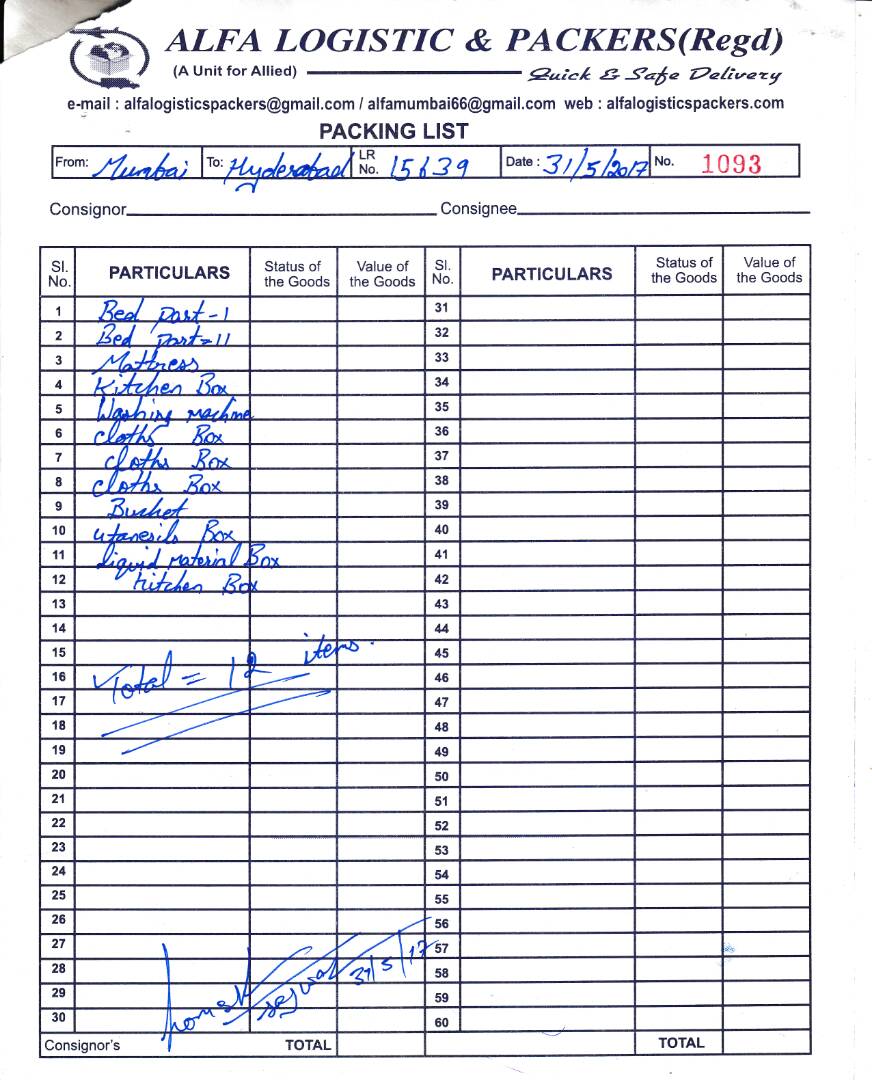 ALFA LOGISTIC & PACKERS(Regd)
(A Unit for Allied) Quick & Safe Delivery
e-mail : alfalogisticspackers@gmail.com / alfamumbai66@gmail.com web : alfalogisticspackers.com
PACKING LIST
From: Mumbai To: Hyderabad LR No. 15639 Date : 31/5/2017 No. 1093
Consignor Consignee
Sl. No. PARTICULARS Status of the Goods Value of the Goods Sl. No. PARTICULARS Status of the Goods Value of the Goods
1 Bed part-1 31
2 Bed part-11 32
3 Mattress 33
4 Kitchen Box 34
5 Washing machine 35
6 cloths Box 36
7 cloths Box 37
8 cloths Box 38
9 Bucket 39
10 utanesils Box 40
11 liquid material Box 41
12 kitchen Box 42
13 43
14 44
15 45
16 Total = 12 items. 46
17 47
18 48
19 49
20 50
21 51
22 52
23 53
24 54
25 55
26 56
27 57
28 31/5/17 58
29 59
30 60
Consignor's TOTAL TOTAL